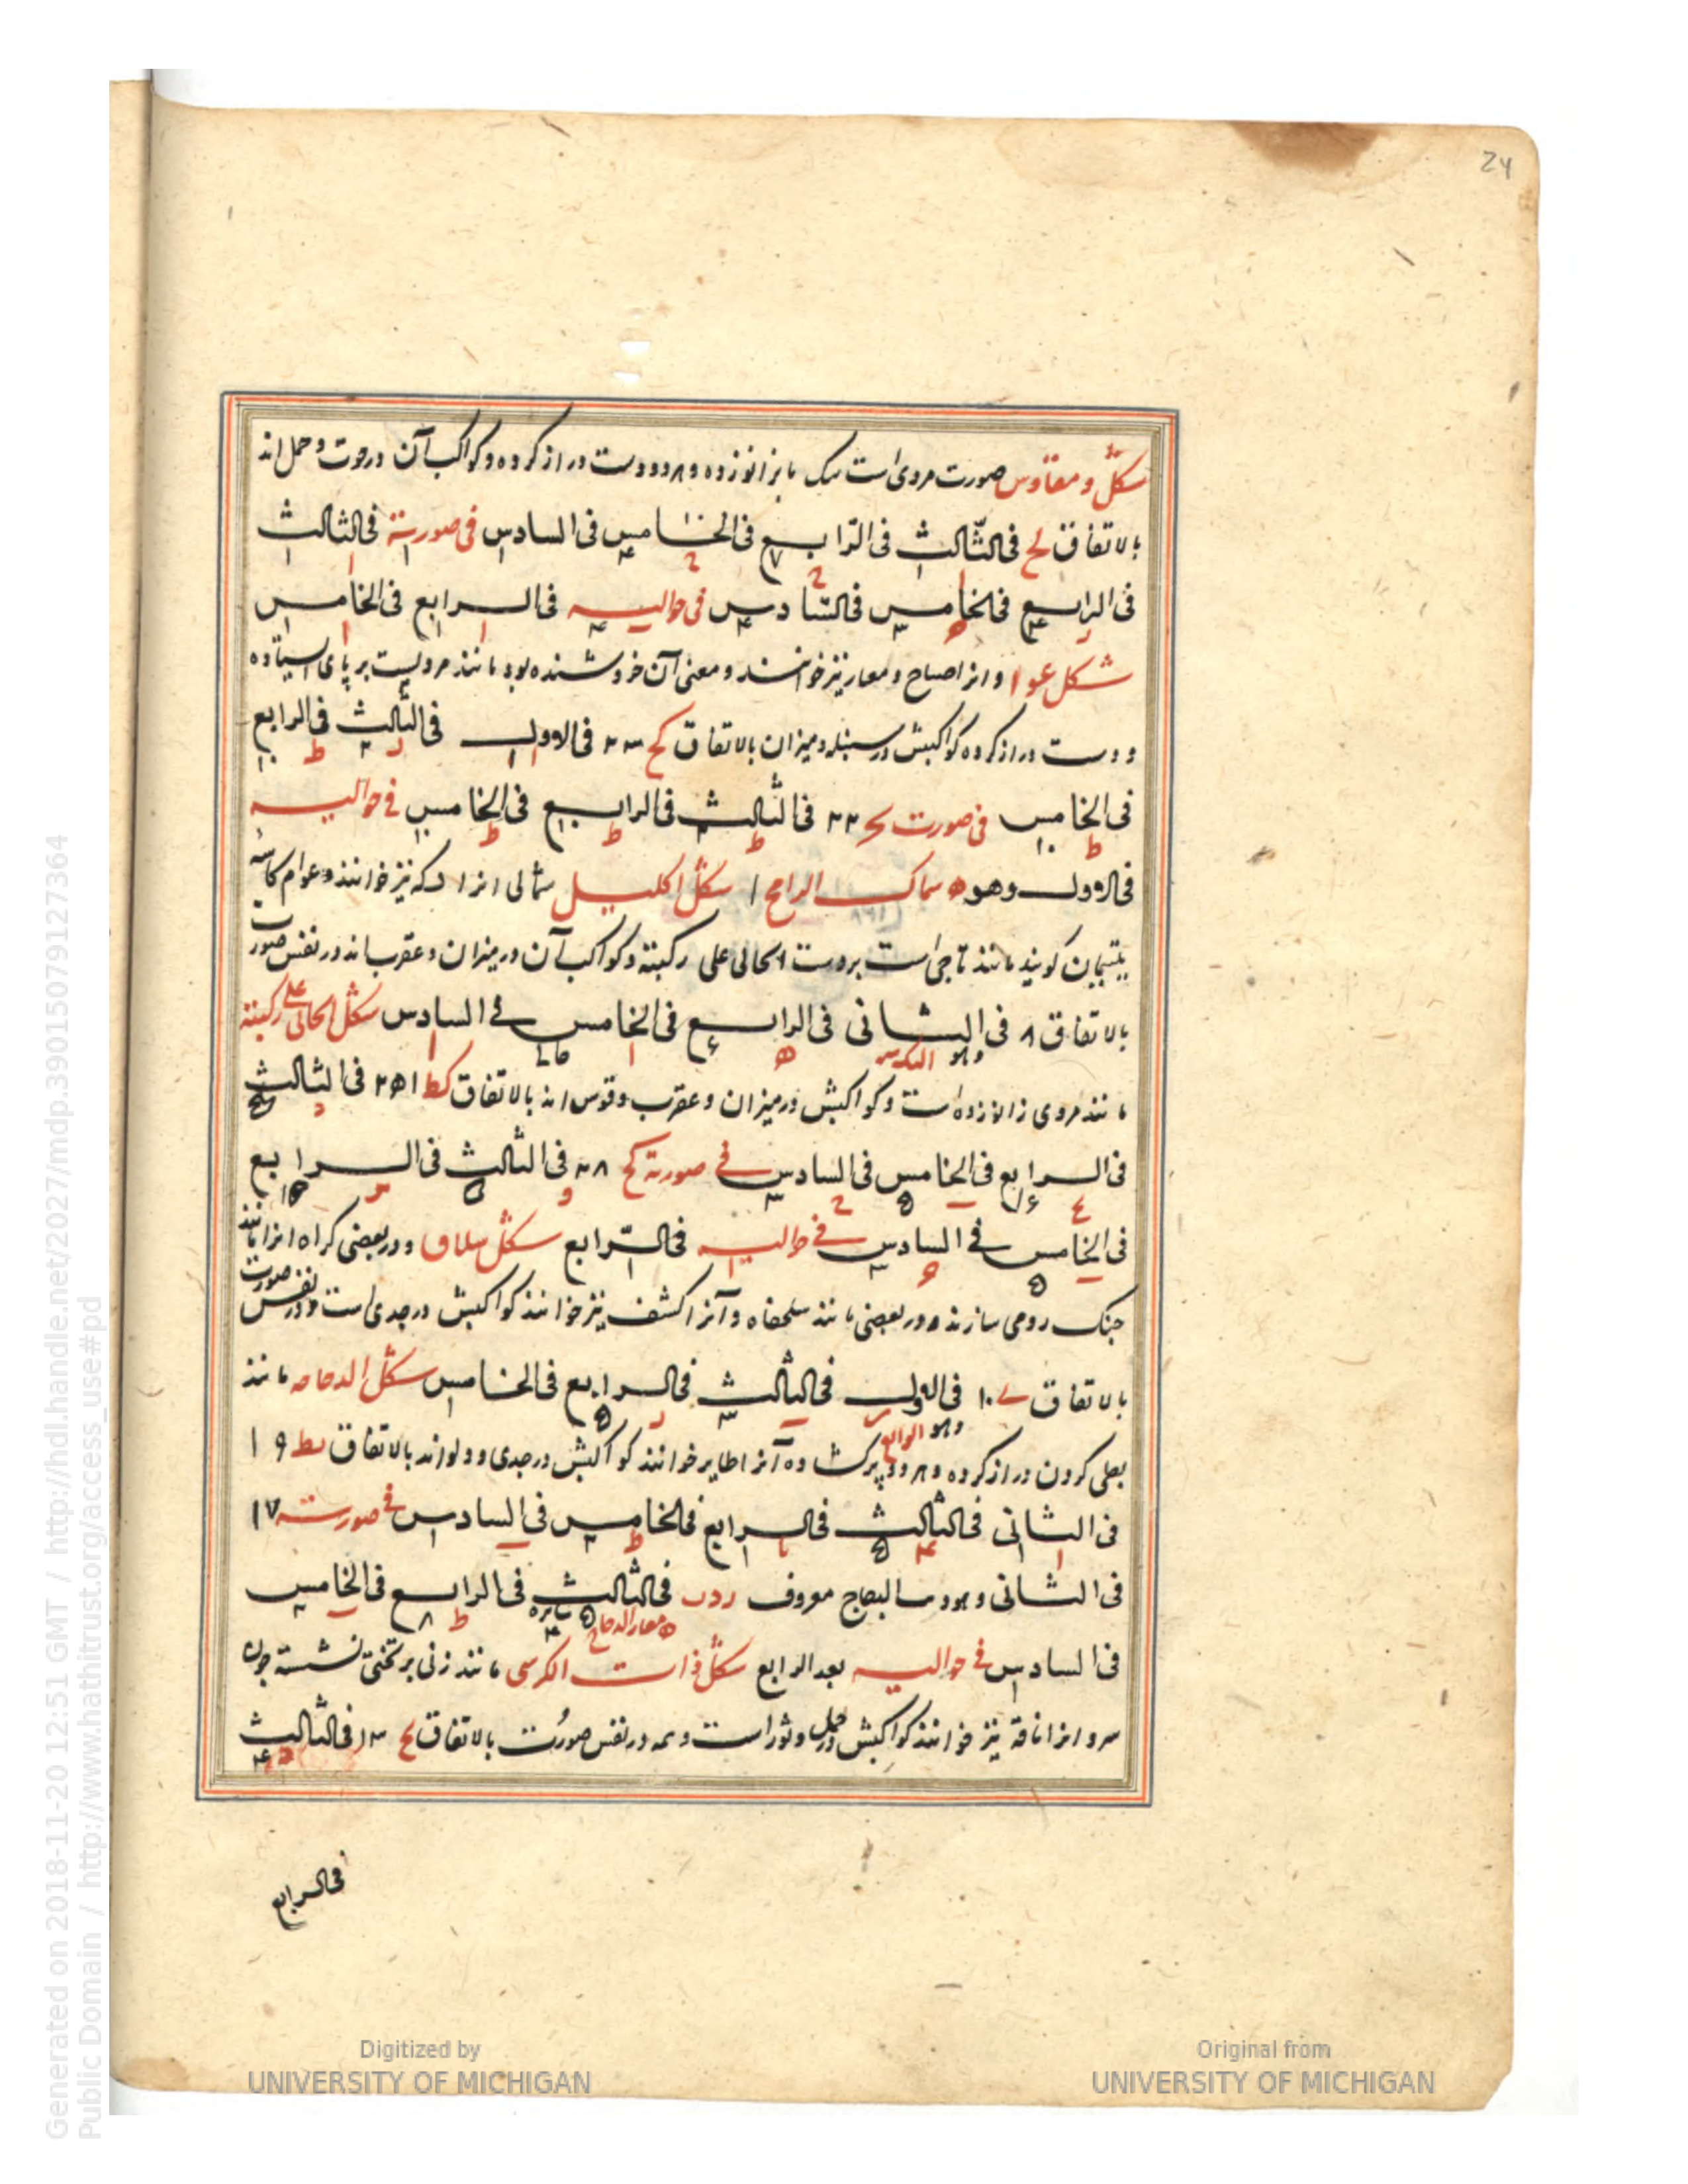 24
صورت مردی است یک با بزانو زده و هر دو دست دراز کرده و کواکب آن در حوت و حمل اند
بالاتفاق لح فی الثالث فی الرابع فی الخامس فی السادس فی صورته فی الثالث
فی الرابع فی الخامس فی السادس فی حوالیه فی الرابع فی الخامس
شکل عوا و انرا صیاح و معار نیز خوانند و معنی آن خروشنده بود مانند مردیست بر پای استاده
و دست دراز کرده کواکبش در سنبله و میزان بالاتفاق کح ۲۳ فی الاول فی الثالث فی الرابع
فی الخامس فی صورت کح ۲۲ فی الثالث فی الرابع فی الخامس فی حوالیه
فی الاول وهو سماک الرامح ۱ شکل اکلیل شمالی انرا فکه نیز خوانند و عوام کاسه
یتیمان کویند مانند تاجی است بردست الحالی علی رکبته و کواکب آن در میزان و عقرب اند در نفس صورت
بالاتفاق ۸ فی الثانی فی الرابع فی الخامس فی السادس شکل الحالی علی رکبته
مانند مردی زانو زده است و کواکبش در میزان و عقرب و قوس اند بالاتفاق کط فی الثالث
فی الرابع فی الخامس فی السادس فی صورته کح ۲۸ فی الثالث فی الرابع
فی الخامس فی السادس فی حوالیه فی الرابع شکل سلاق و در بعضی کراه انرا مانند
جنک رومی سازند و در بعضی مانند سلحفاه و آنرا کشف نیز خوانند کواکبش در جدی است و در نفس صورت
بالاتفاق ی ۱۰ فی الاول فی الثالث فی الرابع فی الخامس شکل الدجاجه مانند
وهو الواقع
بطی کردن دراز کرده و هر دو پر کشاده آنرا طایر خوانند کواکبش در جدی و دلو اند بالاتفاق ۱۹
فی الثانی فی الثالث فی الرابع فی الخامس فی السادس فی صورته ۱۷
فی الثانی و هو معروف ردف فی الثالث فی الرابع فی الخامس
فی السادس فی حوالیه بعد الرابع شکل ذات الکرسی مانند زنی بر تختی نشسته چون
سرو انرا ناقه نیز خوانند کواکبش در حمل و ثور است و همه در نفس صورت بالاتفاق یح ۱۳ فی الثالث
فی الرابع
Digitized by
UNIVERSITY OF MICHIGAN
Original from
UNIVERSITY OF MICHIGAN
Generated on 2018-11-20 12:51 GMT / http://hdl.handle.net/2027/mdp.39015079127364
Public Domain / http://www.hathitrust.org/access_use#pd